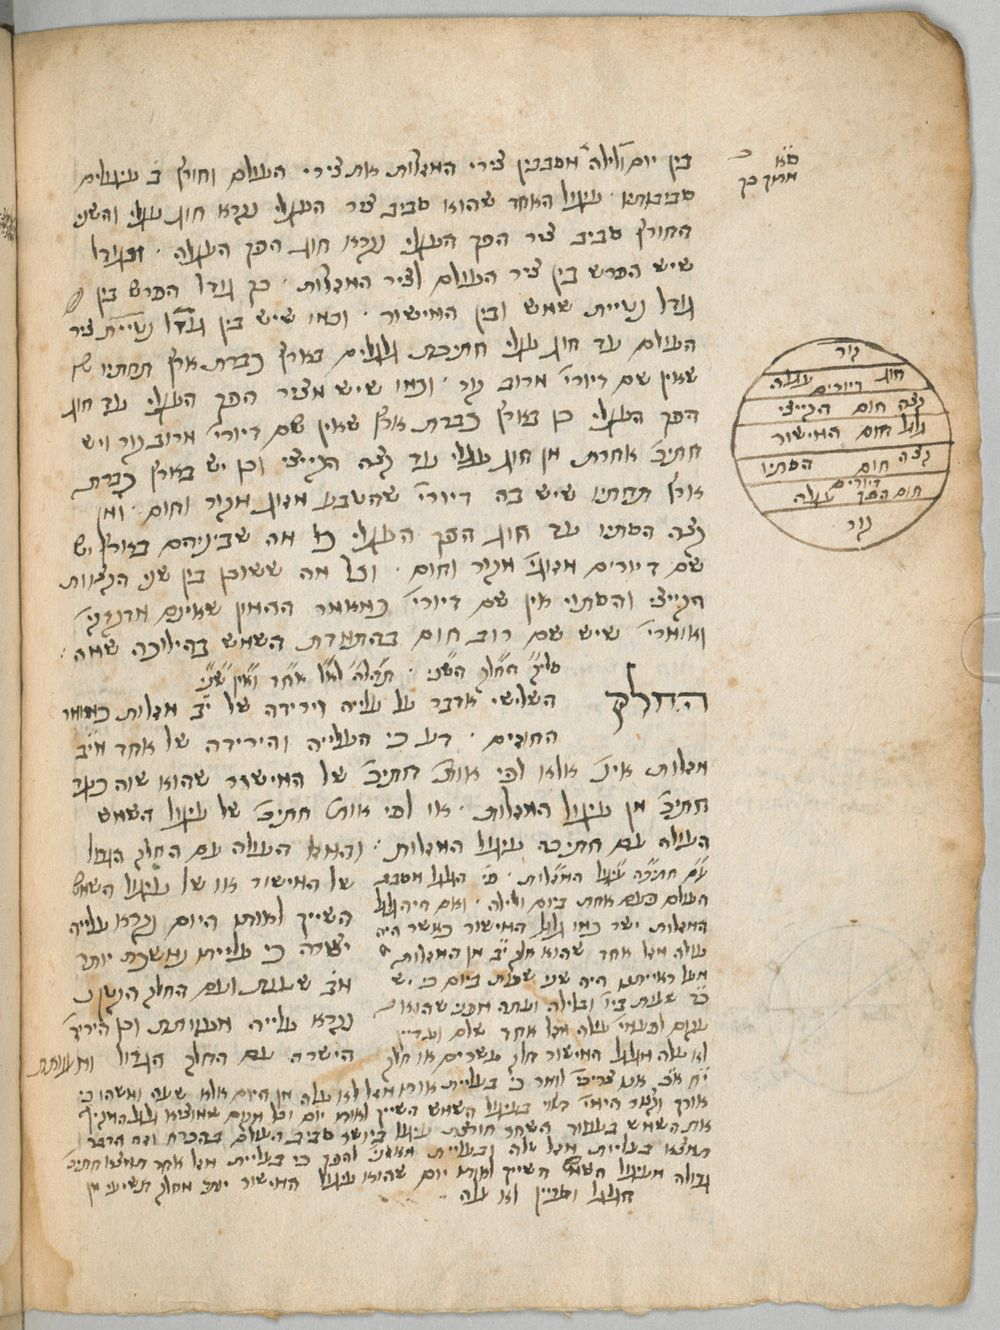 בין יום ולילה מסבבין צירי המזלות את צירי העולם וחורץ ב׳ עיגולים
סביבותיו עיגול האחד שהוא סביב ציר העגלי נקרא חוג עגלי והשני
החורץ סביב ציר הפך העגלי נקרא חוג הפך העגלה וכגודל
שיש הפרש בין ציר העולם לציר המזלות כך גודל הפרש בין
גודל נטיית שמש ובין המישור וכמו שיש בין גודל נטיית ציר
העולם עד חוג עגלי חתיכת גלגלים בארץ כברת ארץ תחתיו
שאין שם דיורי׳ מרוב קור וכמו שיש מציר הפך העגלי עד חוג
הפך העגלי כן בארץ כברת ארץ שאין שם דיורי׳ מרוב קור ויש
חתיכ׳ אחרת מן חוג עגלי עד קצה הקייצי וכן יש בארץ כברת
ארץ תחתיו שיש בה דיורי׳ שהטבע מזוג מקור וחום ומן
קצה הסתיו עד חוג הפך העגלי כל מה שביניהם בארץ יש
שם דיורים מזוגי׳ מקור וחום וכל מה ששוכן בין שני הקצוות
הקייצי והסתוי אין שם דיורי׳ כמאמר ההמון שאינם
ואומרי׳ שיש שם רוב חום בהתמדת השמש בהליכה שמה
סליק החלק השני תהלה לאל אחד ואין שני
החלק
השלישי אדבר על עלייה וירידה של י״ב מזלות כמאמר
החוזים דע כי העלייה והירידה של אחד מי״ב
מזלות אינ׳ אלא לפי אותו חתיכ׳ של המישור שהוא שוה כנגד
חתיכ׳ מן עיגול המזלות או לפי אותו חתיכ׳ של עיגול השמש
העולה עם חתיכה עיגול המזלות והמזל העולה עם החלק הגדול
של המישור או של עיגול השמש
השייך לאותו היום נקרא עלייה
ישרה כי עליית נמשכת יותר
מב׳ שעות ועם החלק הקטן
נקרא עלייה מעוותת וכן הירידה
הישרה עם החלק הגדול ומעוותת
עם חתיכה עיגול המזלות כי הגלגל מסבב
העולם פעם אחת ביום ולילה ואם היה גלגל
המזלות ישר כמו גלגל המישור כאשר היה
עולה מזל אחד שהוא חלק י״ב מן המזלות
היה שני שעות ביום כי יש
כ״ד שעות ביו׳ ובלילה ועתה מפני שהוא
עקום לפעמי׳ עולה מזל אחד שלם ועדיין
לא עלה מגלגל המישור חלק עשרים או חלק
י״ח אבל אנו צריכי׳ לומר כי בעליית אותו מזל לא עלה מן היום אלא שעה ומשהו כי
אורך וקוצר הימי׳ תלוי בעיגול השמש השייך לאותו יום וכל מקום שמוציא גלגל המקיף
את השמש בעמוד השחר חורצת עיגול ביושר סביב העולם בהכרח וזה הדבר
תמצא בעליית מזל טלה ובעליית מאזני׳ להפך כי בעליית מזל אחד תמצא חתיכ׳
גדולה מעיגול השמש השייך לאותו יום שהוא עיגול המישור יותר מחלק תשיעי מן
הגלגל ועדיין לא עלה
ס״א
מתוך כך
קור
חוג עגלה
דיורים
קצה חום הקייצי
גלגל חום המישור
קצה חום הסתיו
דיורים
חוס הפך עגלה
קור